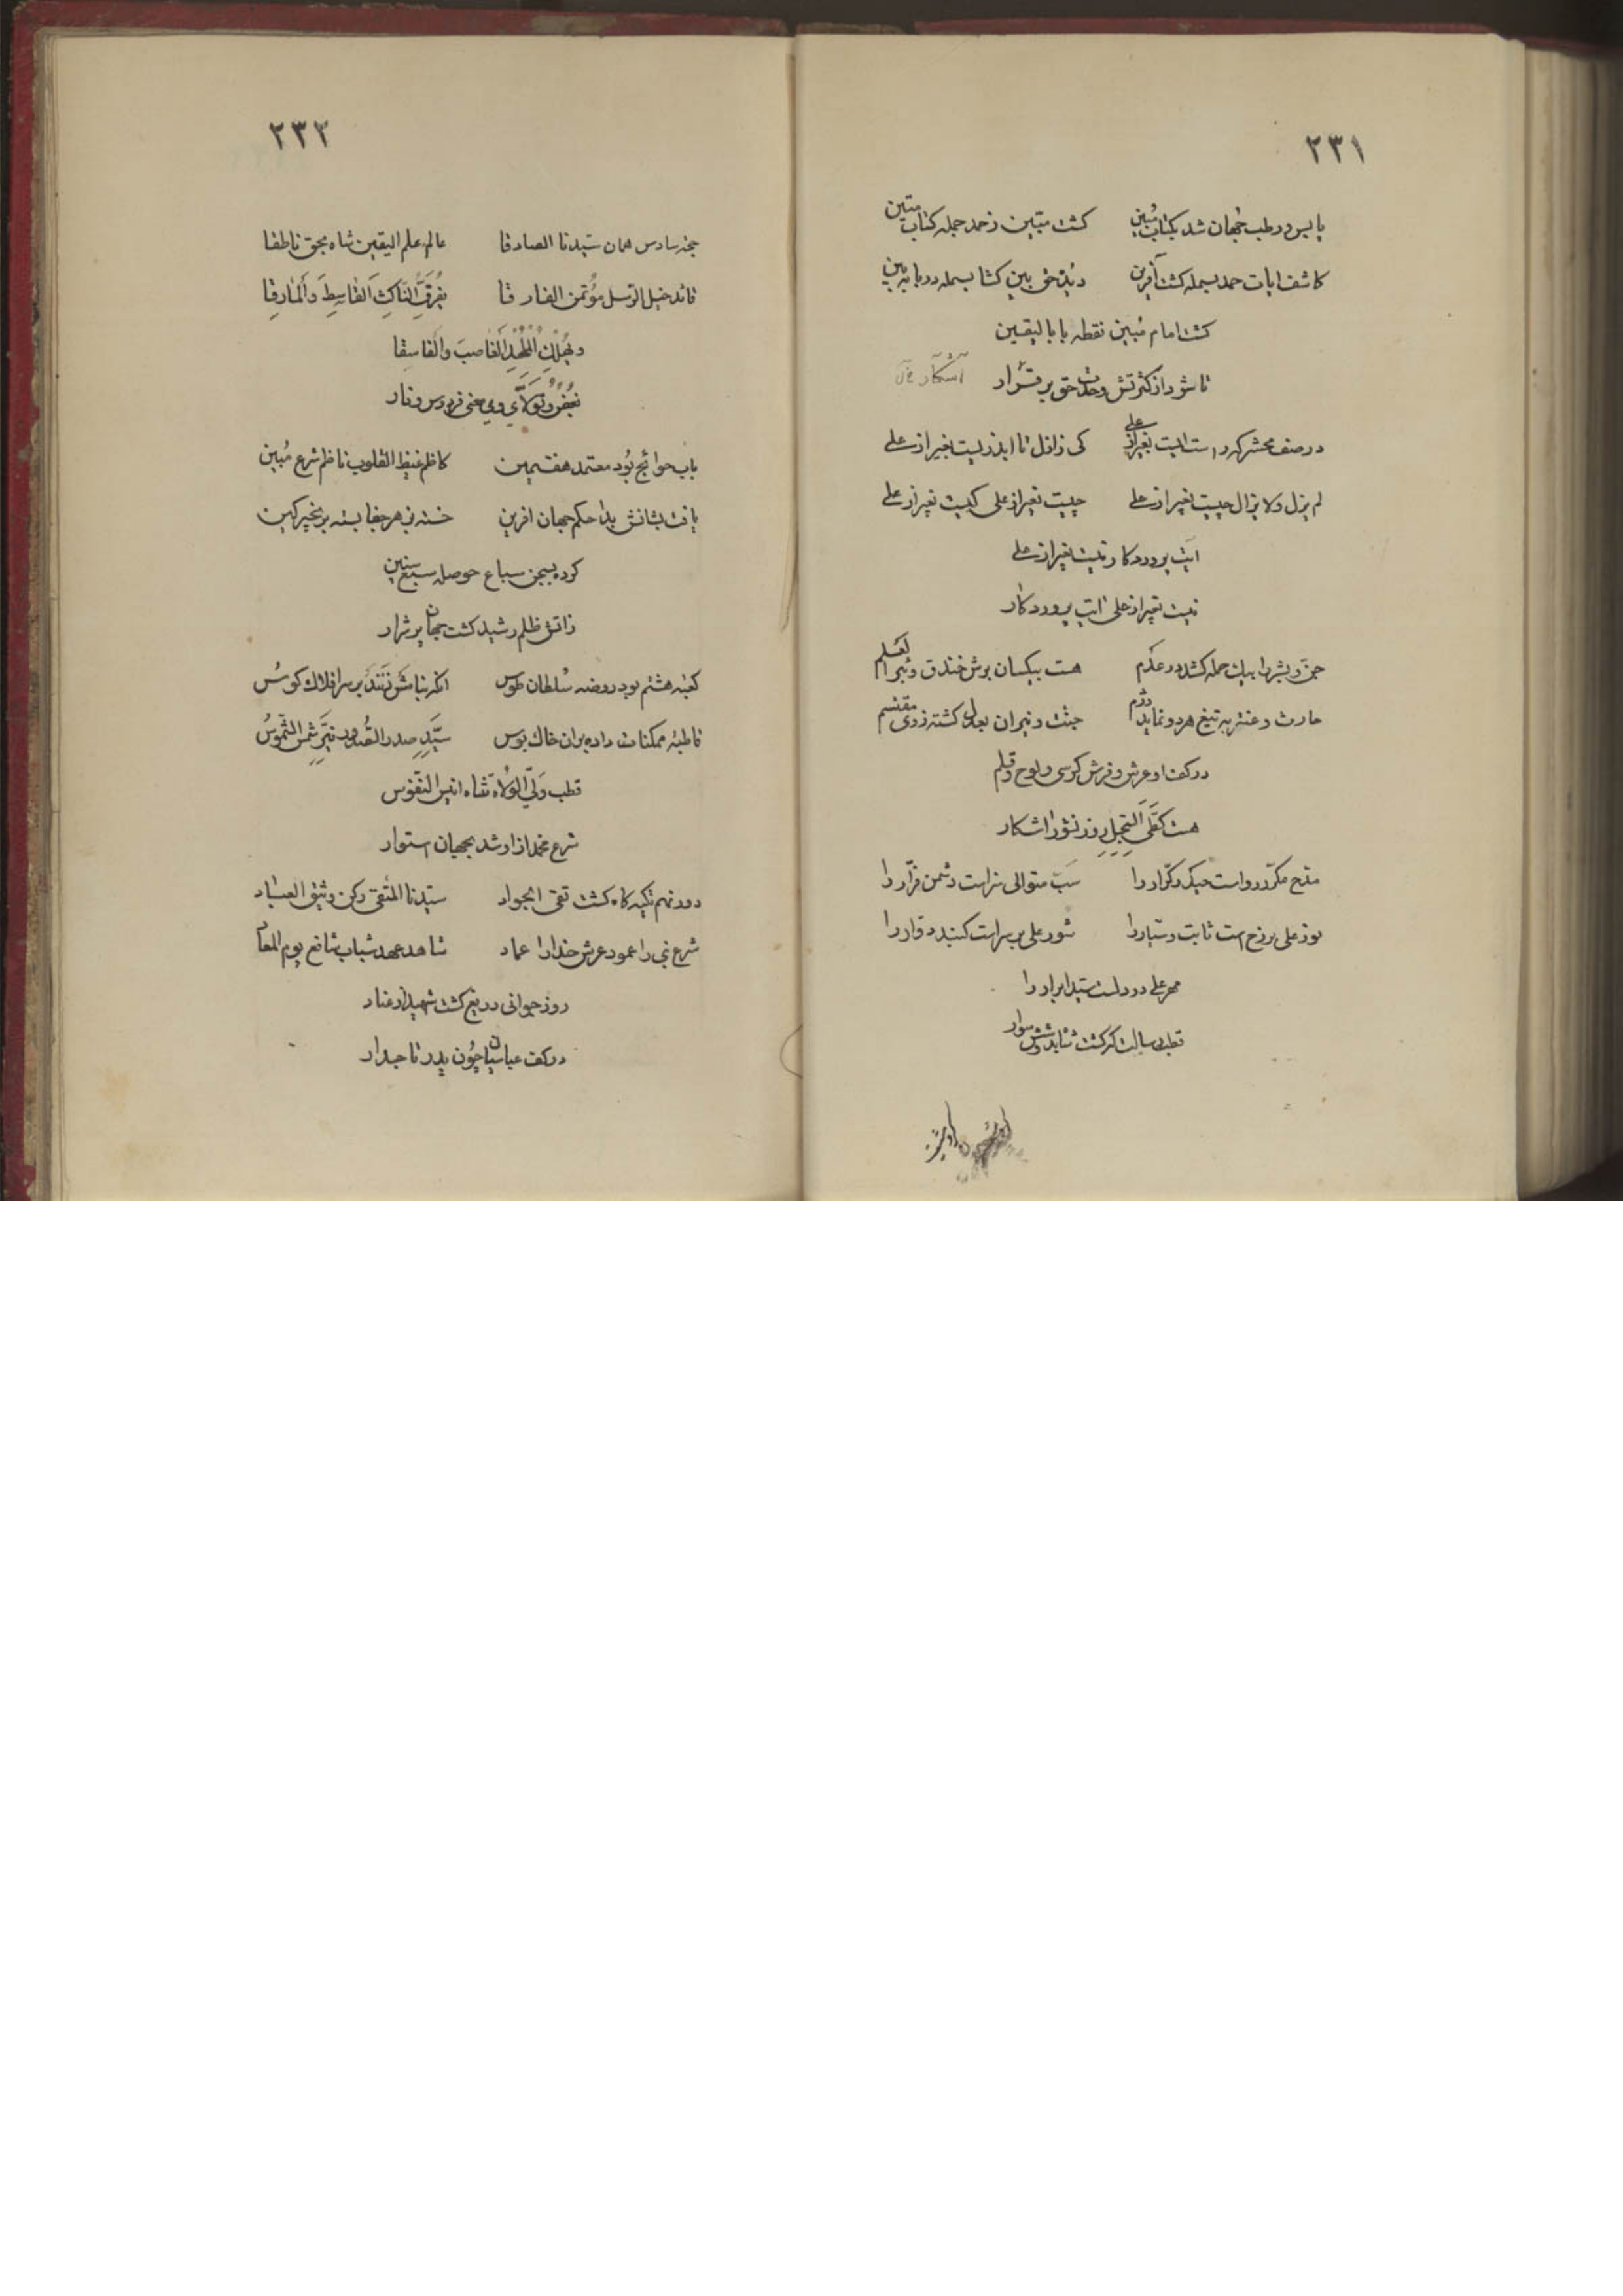 ٢٣١
یابس و رطب جهان شد بکتاب مُبین کشت مبتین ز حمد جمله کتاب متین
کاشف ایات حمد بسمله کشت آفرین دیدۀ حق بین کشا بسمله در با به بین
کشت امام مُبین نقطه با بالیقین
تا شود از کثرتش وحدت حق برقرار
در صف محشر که راست لیت بغیر از علی کی ز اول تا ابد زیست بغیر از علی
لم یزل و لا یزال چیست بغیر از علی چیست بغیر از علی کیست بغیر از علی
ایت پروردکار نیست بغیر از علی
نیست بغیر از علی ایت پروردکار
جن و بشر را بیک حمله کشد در عدم هست بیکسان برش خندق و بئر العلم
حارث و عنتر به تیغ هر دو نماید دژم جنت و نیران بعدل کشته ز وی مقتسم
در کف او عرش و فرش کرسی و لوح و قلم
هست کَطَیِّ السِّجِلِ روز نشور اشکار
مدح مکرّر رواست حیدر کرّار را سبّ متوالی سزاست دشمن فرّار را
نوز علی بر رخ است ثابت و سیّار را شور علی بر سر است کنبد دوّار را
مهر علی در دلست سیّد ابرار را
قطب رسالت که کشت شاید دوشش سوار
٢٣٢
حجة سادس همان سیّدنا الصادقا عالم علم الیقین شاه بحق ناطقا
قائد خیل الرّسل مؤتمن الفارقا یُفَرِّقُ النّاکِثَ القاسِطَ وَالمارِقا
وَیُهْلِکُ المُلْحِدَ الغاصِبَ وَالفاسِقا
بُغض و تَوَلّای وی معنی فردوس و نار
باب حوائج بُود معتمد هفتمین کاظم غیظ القلوب ناظم شرع مُبین
یافت بشانش بدا حکم جهان افرین خسته ز هر جفا بسته بزنجیر کین
کرده بسجن سباع حوصله سبع سنین
ز اتش ظلم رشید کشت جهان پر شرار
کعبه هشتم بود روضه سُلطان طوس انکه بنامش زنند بر سر افلاک کوسُ
قاطبۀ ممکنات داده بران خاک بوس سَیِّدِ صدر الصُّدور نَیِّرِ شمس الشُّموسُ
قطب وَلیّ الوُلاة شاه انیس النفوس
شرع محمّد از او شد بجهان استوار
دور نهم تکیه کاه کشت تقی الجواد سیّدنا المتّقی رکن وثیق العباد
شرع نبی را عمود عرش خدا را عماد شاهد عهد شباب شافع یوم المعاد
روز جوانی دریغ کشت شهید از عناد
در کف عباسیان چُون پدر تاجدار